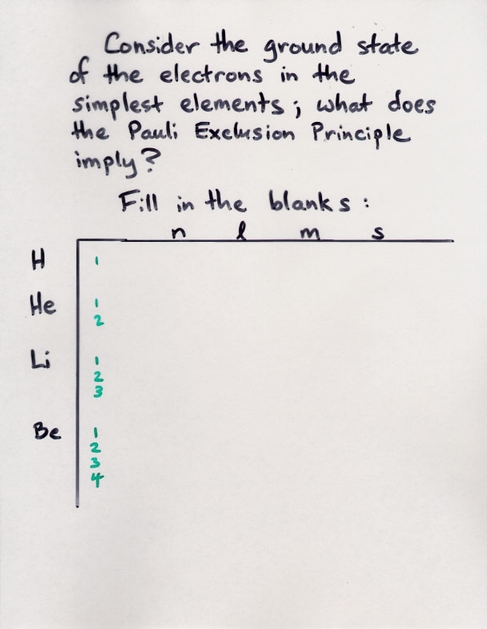 Consider the ground state
of the electrons in the
simplest elements; what does
the Pauli Exclusion Principle
imply?
Fill in the blanks:
n l m s
H 1
He 1
2
Li 1
2
3
Be 1
2
3
4